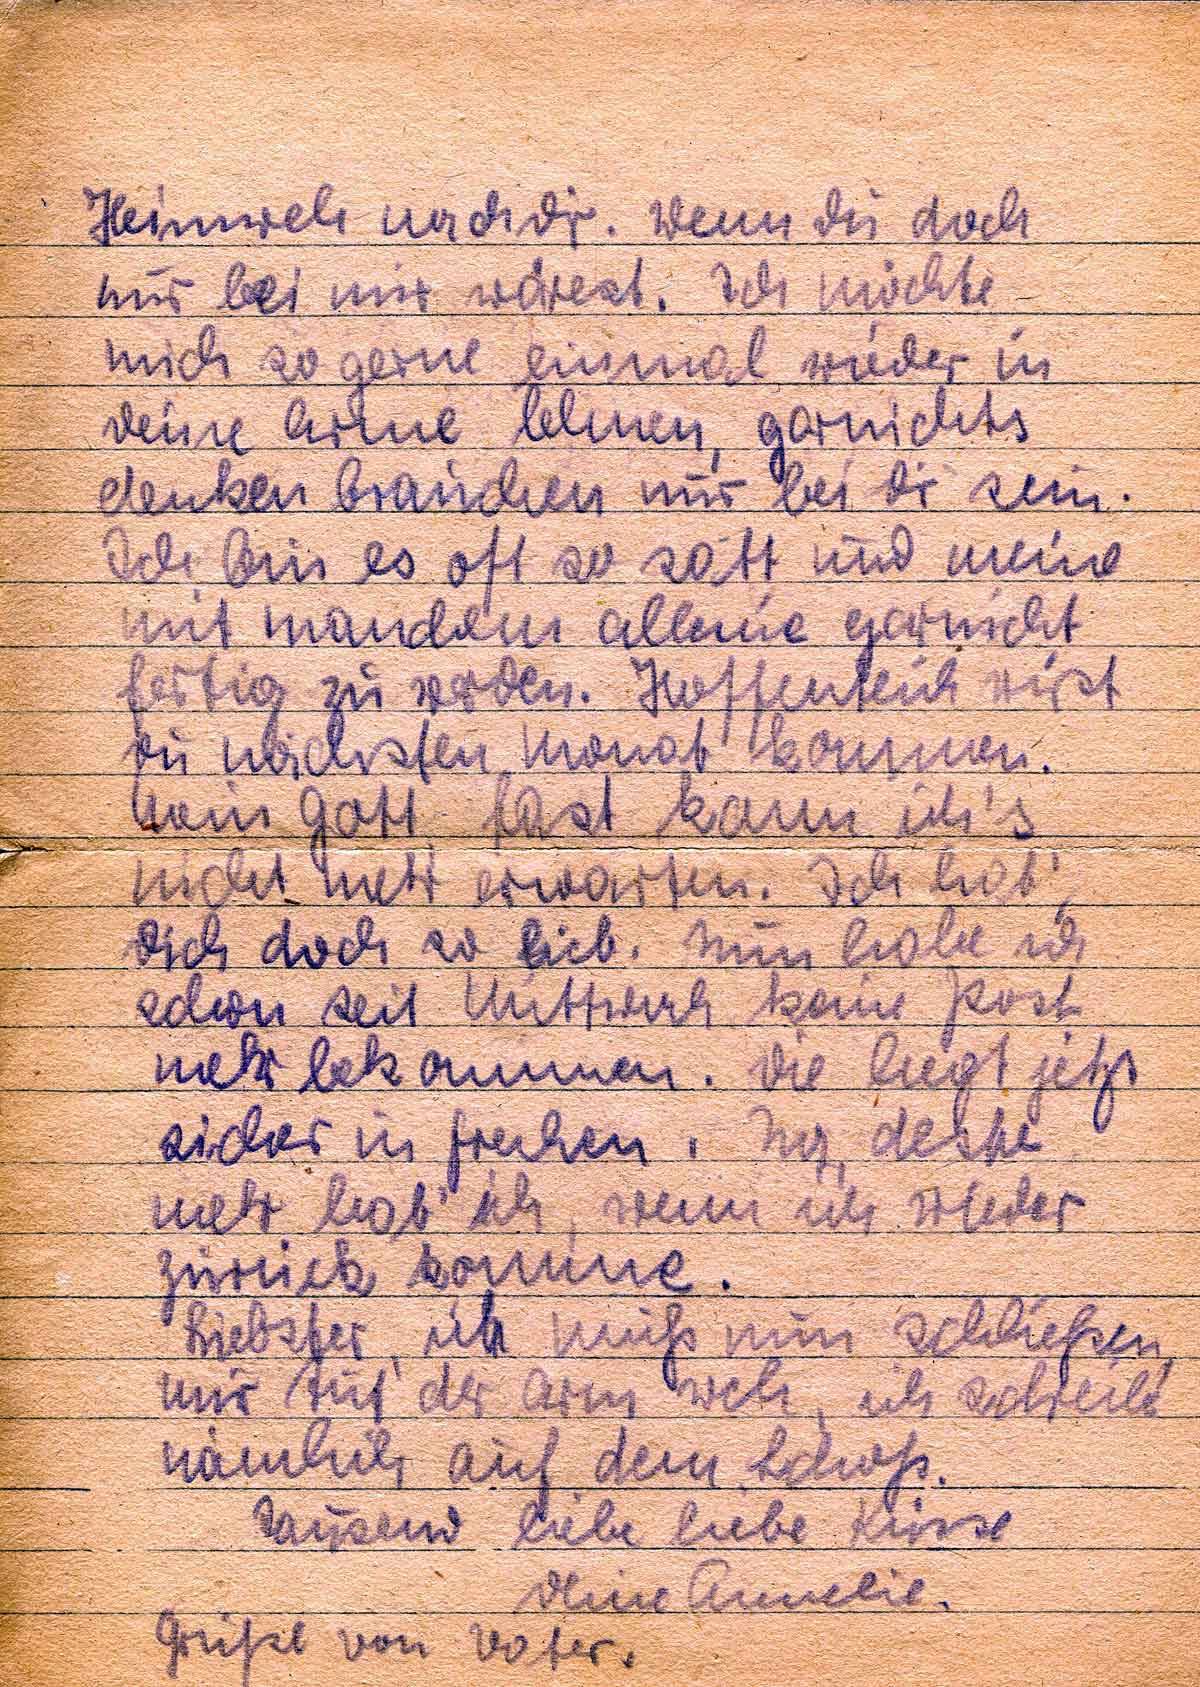 Heimweh nach dir. Wenn du doch
nur bei mir wärest. Ich möchte
mich so gerne einmal wieder in
deine Arme lehnen, garnichts
denken brauchen nur bei dir sein.
Ich bin es oft so satt und meine
mit manchem alleine garnicht
fertig zu werden. Hoffentlich wirst
du nächsten Monat kommen.
Mein Gott fast kann ich's
nicht mehr erwarten. Ich hab'
dich doch so lieb. Nun habe ich
schon seit Mittwoch keine Post
mehr bekommen. Die liegt jetzt
sicher in Frechen. Na, desto
mehr hab' ich, wenn ich wieder
zurück komme.
Liebster, ich muß nun schließen,
mir tut der Arm weh, ich schreib'
nämlich auf dem Schoß.
Tausend liebe liebe Küsse
deine Annelie.
Grüße von Vater.